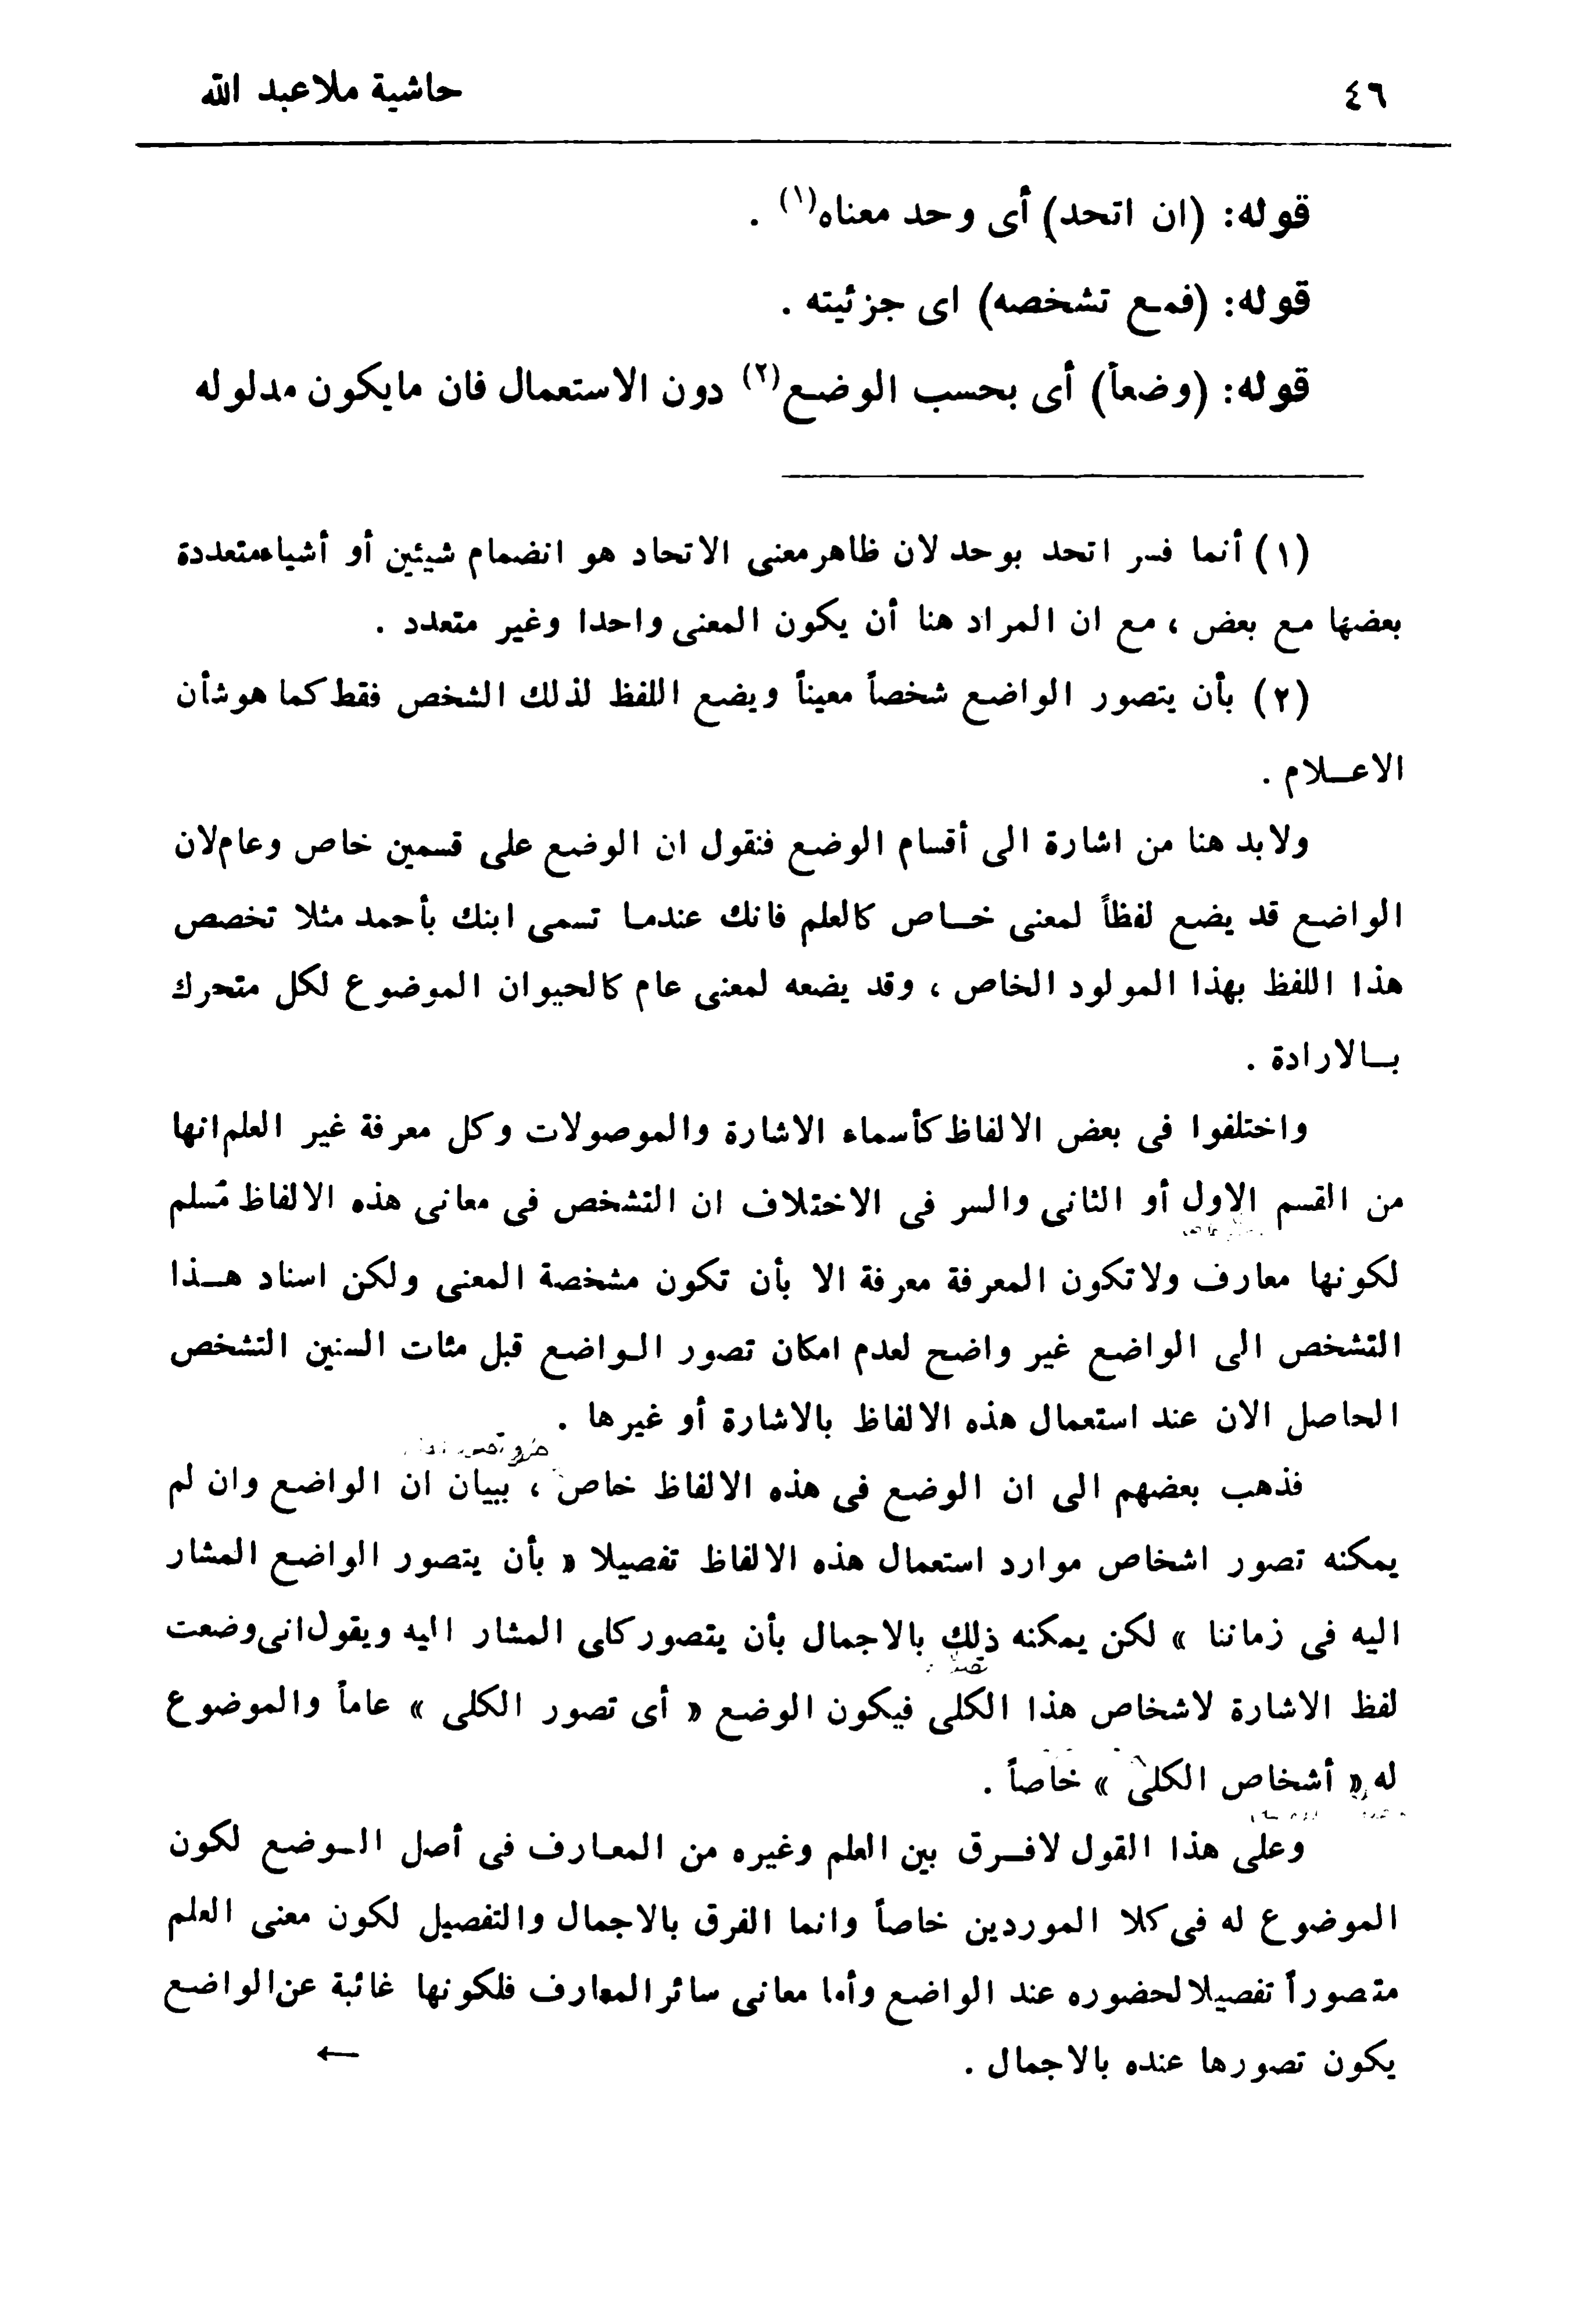 ٤٦
حاشية ملاعبد الله
قوله: (ان اتحد) أى وحد معناه(١) .
قوله: (فمع تشخصه) اى جزئيته .
قوله: (وضعاً) أى بحسب الوضع(٢) دون الاستعمال فان مايكون مدلوله
(١) أنما فسر اتحد بوحد لان ظاهر معنى الاتحاد هو انضمام شيئين أو أشياء متعددة
بعضها مع بعض ، مع ان المراد هنا أن يكون المعنى واحدا وغير متعدد .
(٢) بأن يتصور الواضع شخصاً معيناً ويضع اللفظ لذلك الشخص فقط كما هو شأن
الاعــلام .
ولابد هنا من اشارة الى أقسام الوضع فنقول ان الوضع على قسمين خاص وعام لان
الواضع قد يضع لفظاً لمعنى خــاص كالعلم فانك عندمـا تسمى ابنك بأحمد مثلا تخصص
هذا اللفظ بهذا المولود الخاص ، وقد يضعه لمعنى عام كالحيوان الموضوع لكل متحرك
بــالارادة .
واختلفوا فى بعض الالفاظ كأسماء الاشارة والموصولات وكل معرفة غير العلم انها
من القسم الاول أو الثانى والسر فى الاختلاف ان التشخص فى معانى هذه الالفاظ مُسلم
لكونها معارف ولاتكون المعرفة معرفة الا بأن تكون مشخصة المعنى ولكن اسناد هــذا
التشخص الى الواضع غير واضح لعدم امكان تصور الـواضع قبل مئات السنين التشخص
الحاصل الان عند استعمال هذه الالفاظ بالاشارة أو غيرها .
فذهب بعضهم الى ان الوضع فى هذه الالفاظ خاص ، ببيان ان الواضع وان لم
يمكنه تصور اشخاص موارد استعمال هذه الالفاظ تفصيلا « بأن يتصور الواضع المشار
اليه فى زماننا » لكن يمكنه ذلك بالاجمال بأن يتصور كلى المشار اليه ويقول انى وضعت
لفظ الاشارة لاشخاص هذا الكلى فيكون الوضع « أى تصور الكلى » عاماً والموضوع
له « أشخاص الكلى » خاصاً .
وعلى هذا القول لافــرق بين العلم وغيره من المعـارف فى أصل الـوضع لكون
الموضوع له فى كلا الموردين خاصاً وانما الفرق بالاجمال والتفصيل لكون معنى العلم
متصوراً تفصيلا لحضوره عند الواضع وأما معانى سائر المعارف فلكونها غائبة عن الواضع
يكون تصورها عنده بالاجمال . ←